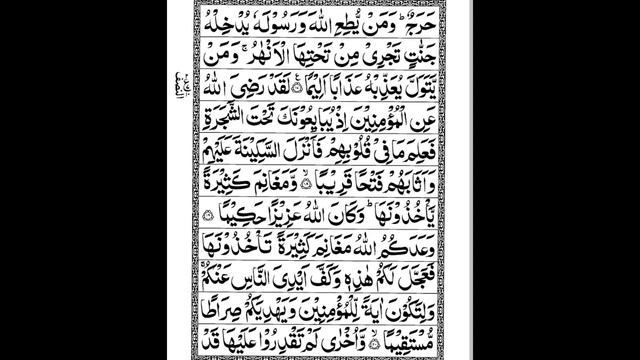 حَرَجٌ ؕ وَمَنْ يُّطِعِ اللّٰهَ وَرَسُوْلَهٗ يُدْخِلْهُ
جَنّٰتٍ تَجْرِيْ مِنْ تَحْتِهَا الْاَنْهٰرُ ۚ وَمَنْ
يَّتَوَلَّ يُعَذِّبْهُ عَذَابًا اَلِيْمًا ۟ لَقَدْ رَضِيَ اللّٰهُ
عَنِ الْمُؤْمِنِيْنَ اِذْ يُبَايِعُوْنَكَ تَحْتَ الشَّجَرَةِ
فَعَلِمَ مَا فِيْ قُلُوْبِهِمْ فَاَنْزَلَ السَّكِيْنَةَ عَلَيْهِمْ
وَاَثَابَهُمْ فَتْحًا قَرِيْبًا ۟ وَّمَغَانِمَ كَثِيْرَةً
يَّاْخُذُوْنَهَا ؕ وَكَانَ اللّٰهُ عَزِيْزًا حَكِيْمًا ۟
وَعَدَكُمُ اللّٰهُ مَغَانِمَ كَثِيْرَةً تَاْخُذُوْنَهَا
فَعَجَّلَ لَكُمْ هٰذِهٖ وَكَفَّ اَيْدِيَ النَّاسِ عَنْكُمْ ۚ
وَلِتَكُوْنَ اٰيَةً لِّلْمُؤْمِنِيْنَ وَيَهْدِيَكُمْ صِرَاطًا
مُّسْتَقِيْمًا ۟ وَّاُخْرٰى لَمْ تَقْدِرُوْا عَلَيْهَا قَدْ
النصف